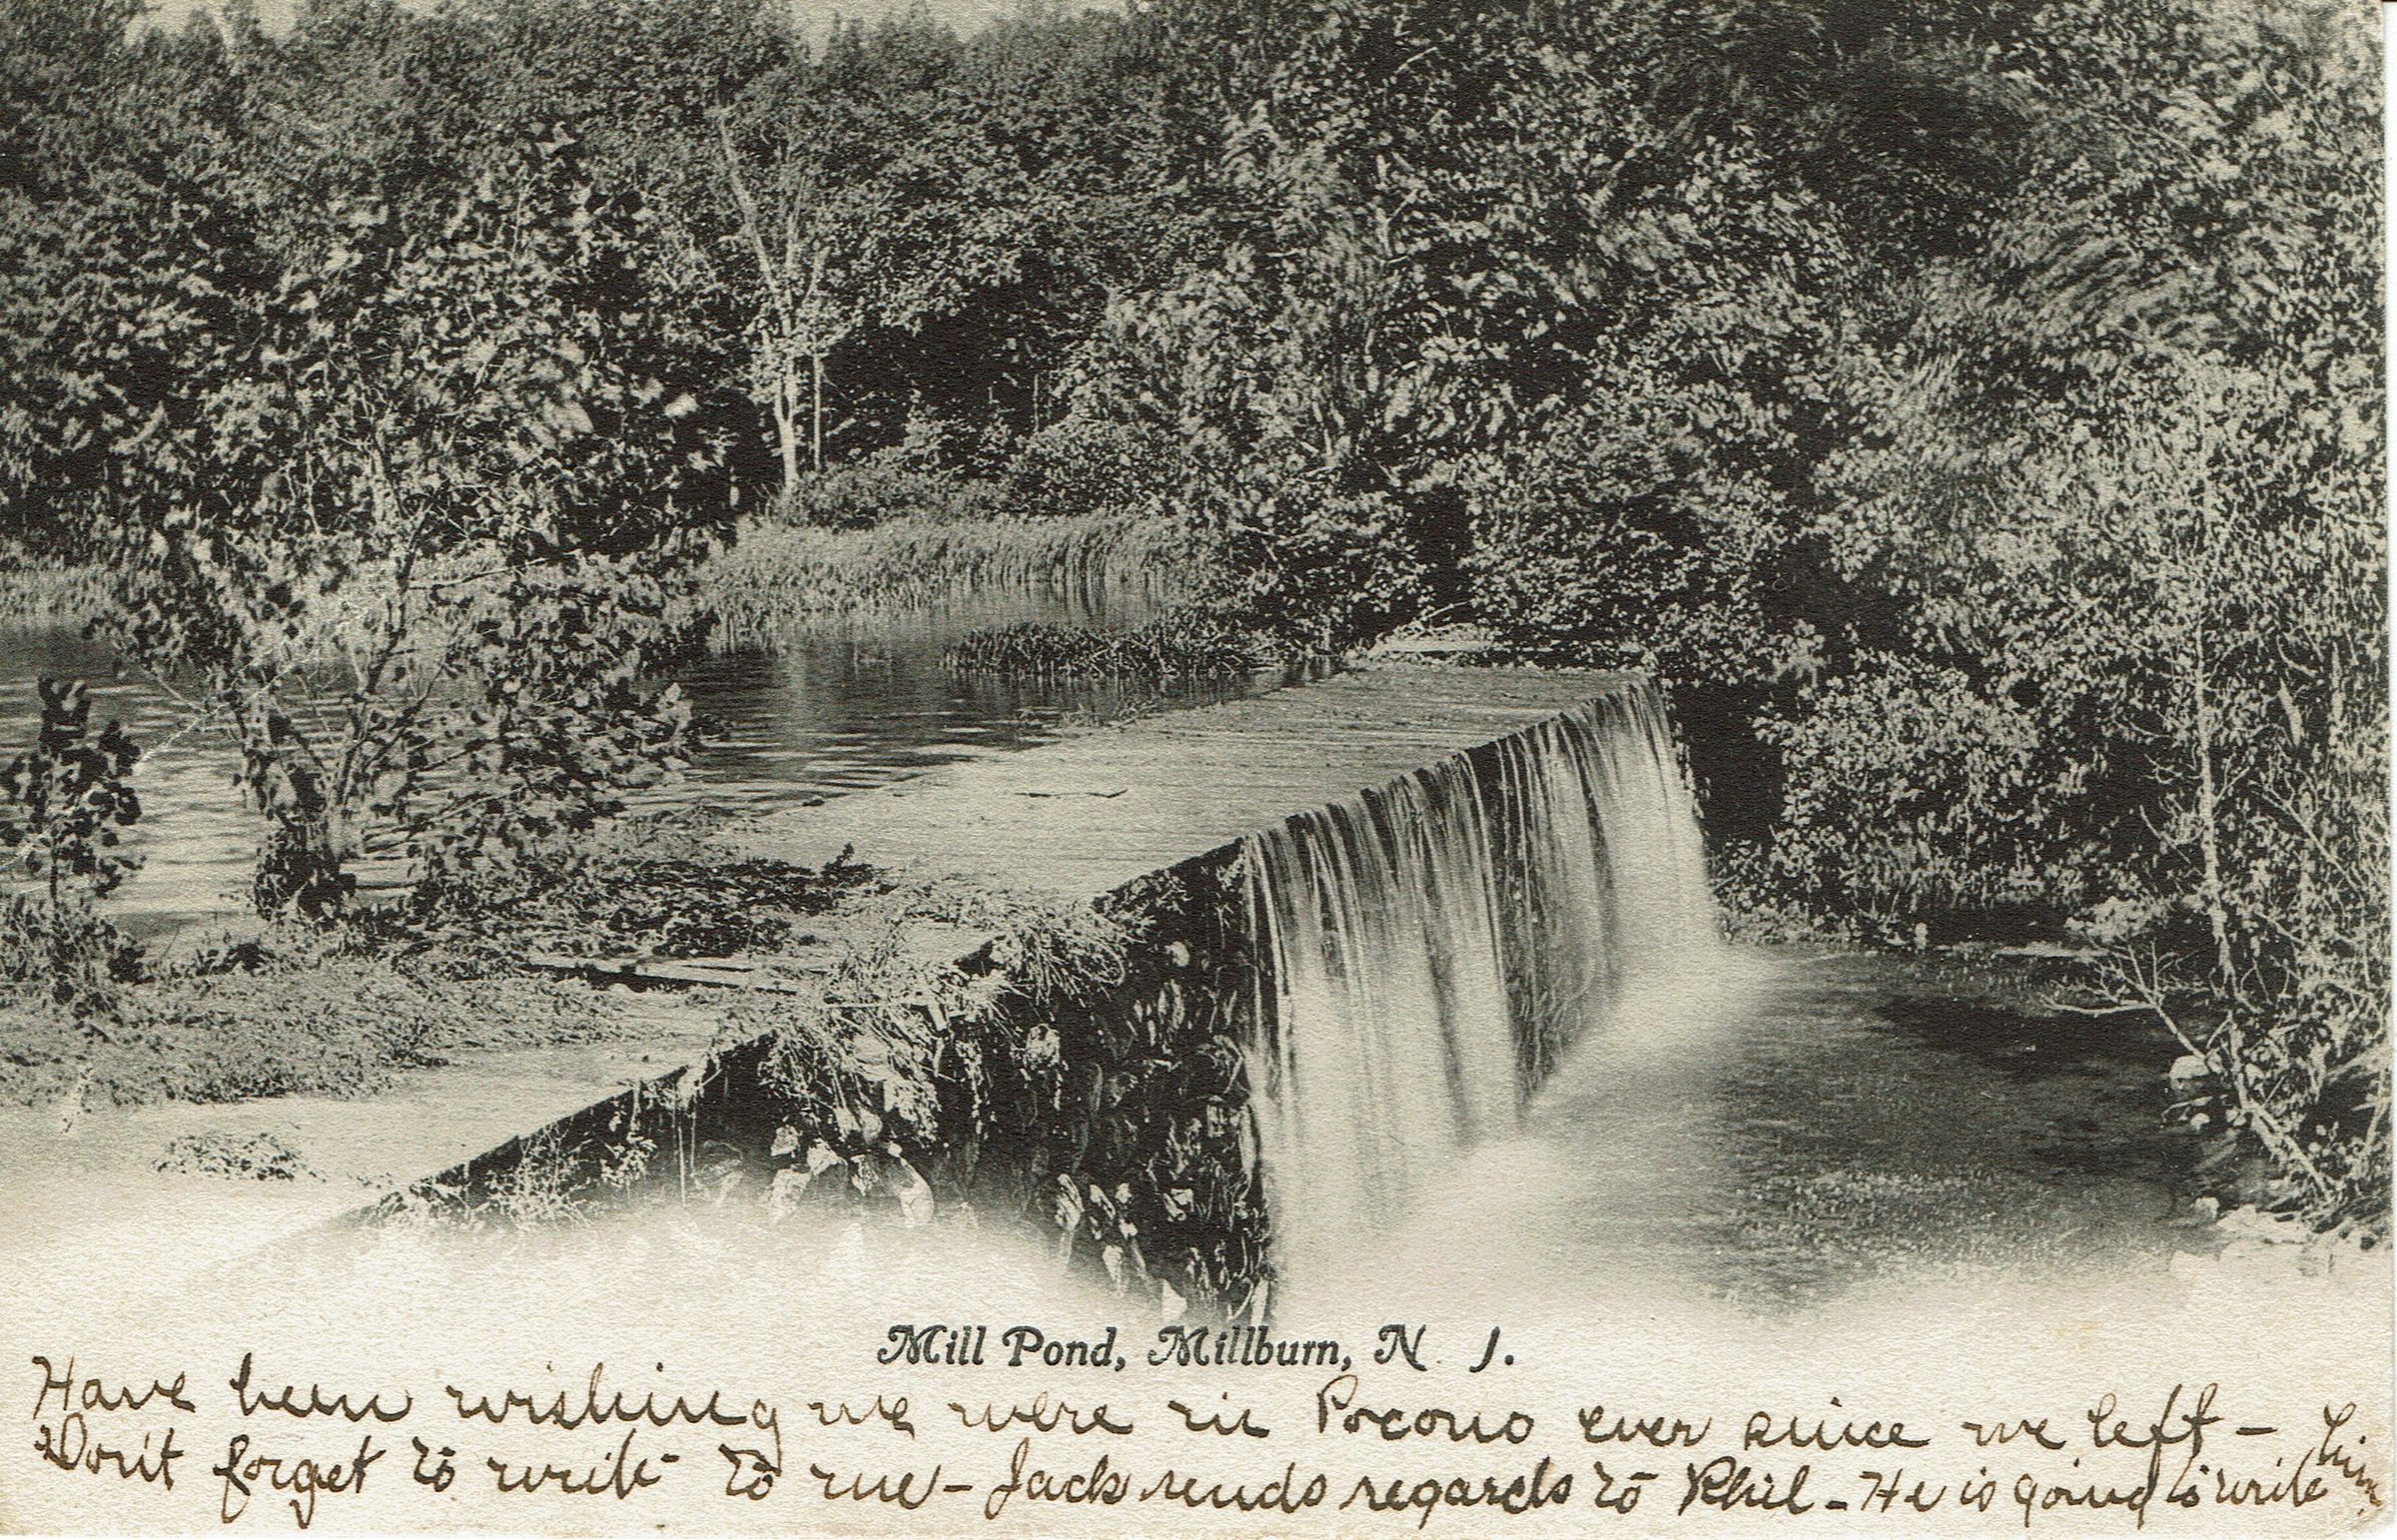 Mill Pond, Millburn, N. J.
Have been wishing we were in Pocono ever since we left –
Don't forget to write to me – Jack sends regards to Phil – He is going to write him.